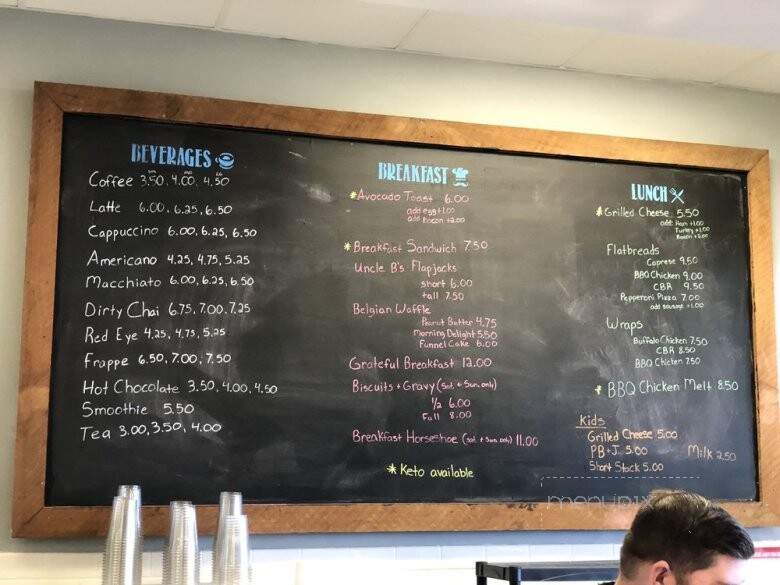 BEVERAGES
Coffee 3.50, 4.00, 4.50
Latte 6.00, 6.25, 6.50
Cappuccino 6.00, 6.25, 6.50
Americano 4.25, 4.75, 5.25
Macchiato 6.00, 6.25, 6.50
Dirty Chai 6.75, 7.00, 7.25
Red Eye 4.25, 4.75, 5.25
Frappe 6.50, 7.00, 7.50
Hot Chocolate 3.50, 4.00, 4.50
Smoothie 5.50
Tea 3.00, 3.50, 4.00
BREAKFAST
*Avocado Toast 6.00
add egg +1.00
add bacon +2.00
*Breakfast Sandwich 7.50
Uncle B's Flapjacks
short 6.00
tall 7.50
Belgian Waffle
Peanut Butter 4.75
Morning Delight 5.50
Funnel Cake 6.00
Grateful Breakfast 12.00
Biscuits + Gravy (Sat. + Sun only)
1/2 6.00
Full 8.00
Breakfast Horseshoe (Sat. + Sun. only) 11.00
* Keto available
LUNCH
*Grilled Cheese 5.50
add: Ham +1.00
Turkey +1.00
Bacon +2.00
Flatbreads
Caprese 9.50
BBQ Chicken 9.00
CBR 9.50
Pepperoni Pizza 7.00
add sausage +1.00
Wraps
Buffalo Chicken 7.50
CBR 8.50
BBQ Chicken 7.50
* BBQ Chicken Melt 8.50
Kids
Grilled Cheese 5.00
PB+J 5.00 Milk 2.50
Short Stack 5.00
menupix